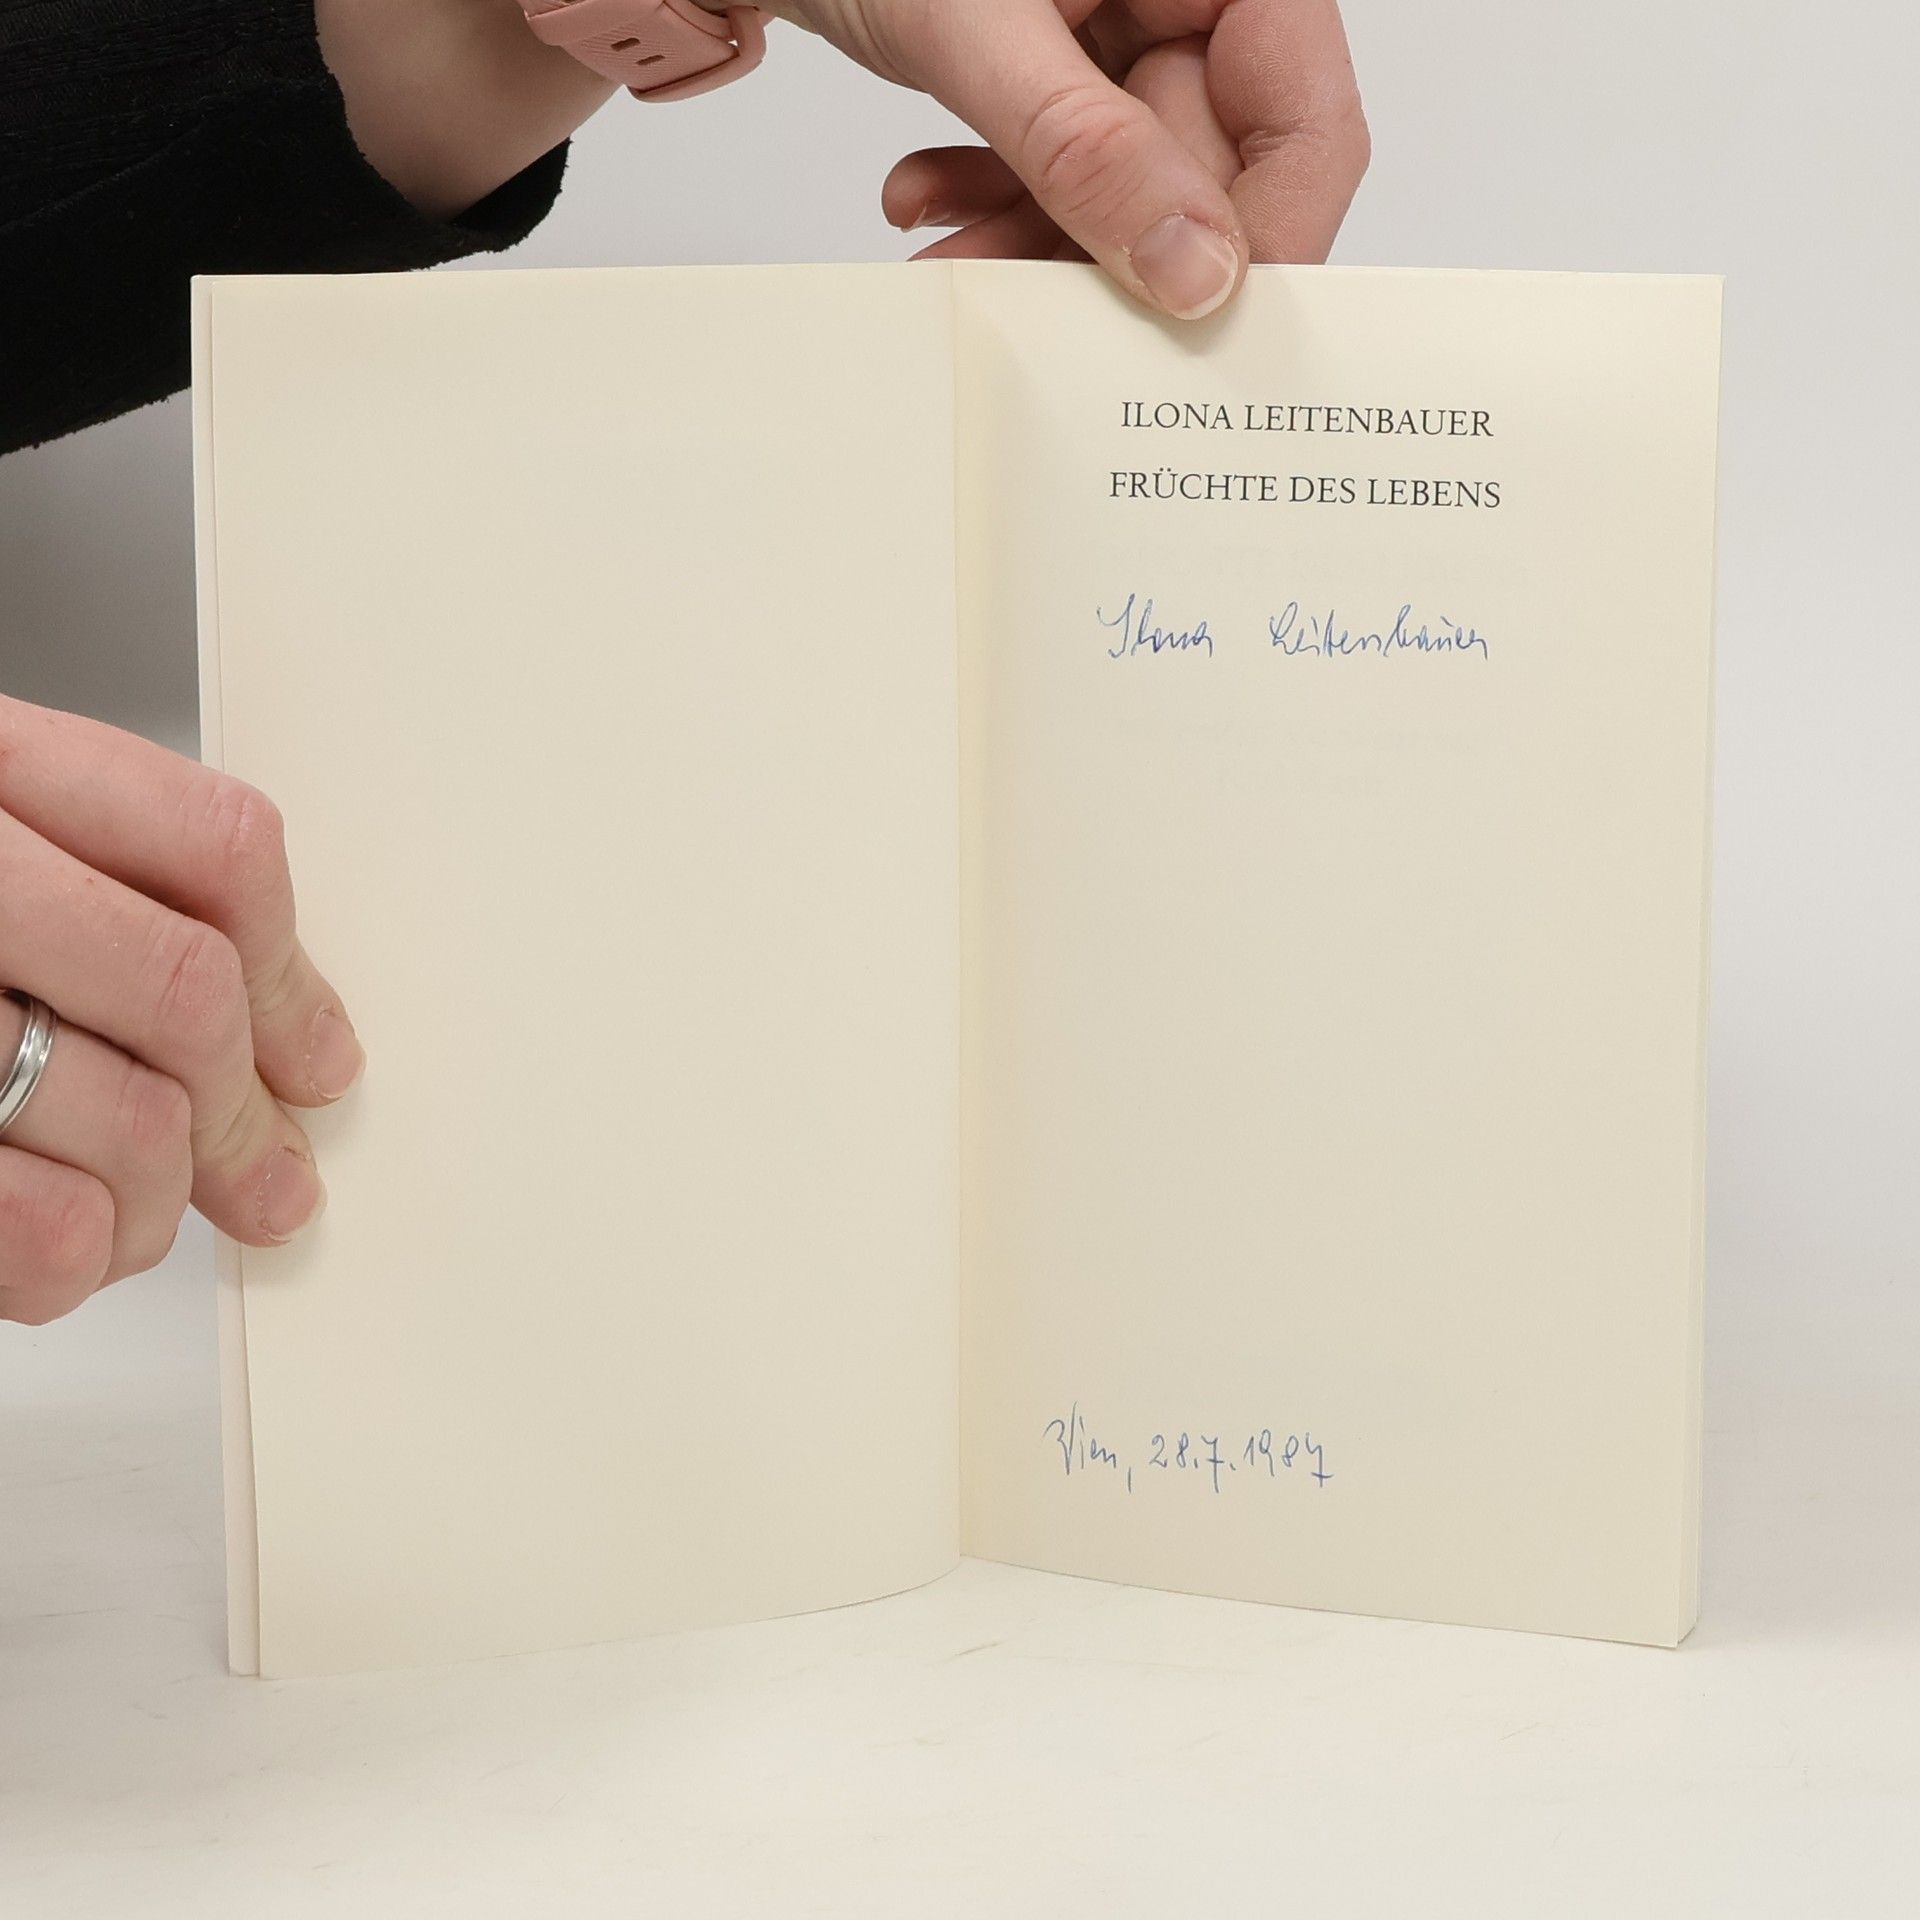 ILONA LEITENBAUER
FRÜCHTE DES LEBENS
Ilona Leitenbauer
Wien, 28.7.1987